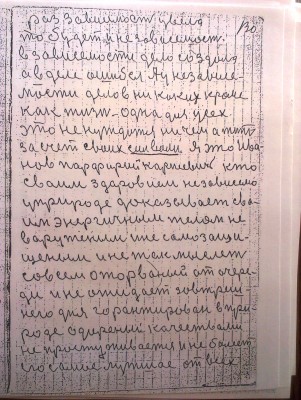 раз зависимост увела
130
то будет и независемост.
в зависемости дело создоля
а в деле ошибся. А у независе-
мости делов ни каких кроме
как жизн одна для усех
это не нуждатся ни чем а это
за счет своих сил воли. Я это Ива-
нов парфирий карнеевич кто
своим здоровием независемо
у природе доказывает сво-
им энергичным телом не
варуженим и не самозащи-
щеным и не так мыслет
совсем оторваный от очере-
ди и не отидает зовтриш-
него дня гарантирован в при-
роде одареный качествами
не простуживаетя и не болеет
это самое лутшае от всех